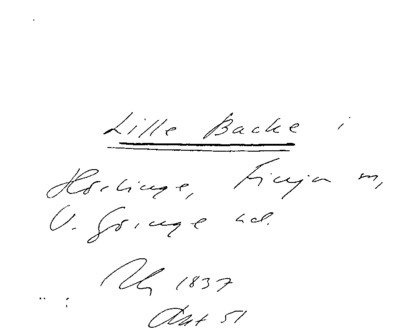 Lille Backe i
Hörlinge, Finja sn,
V. Göinge hd.
1837
Akt 51